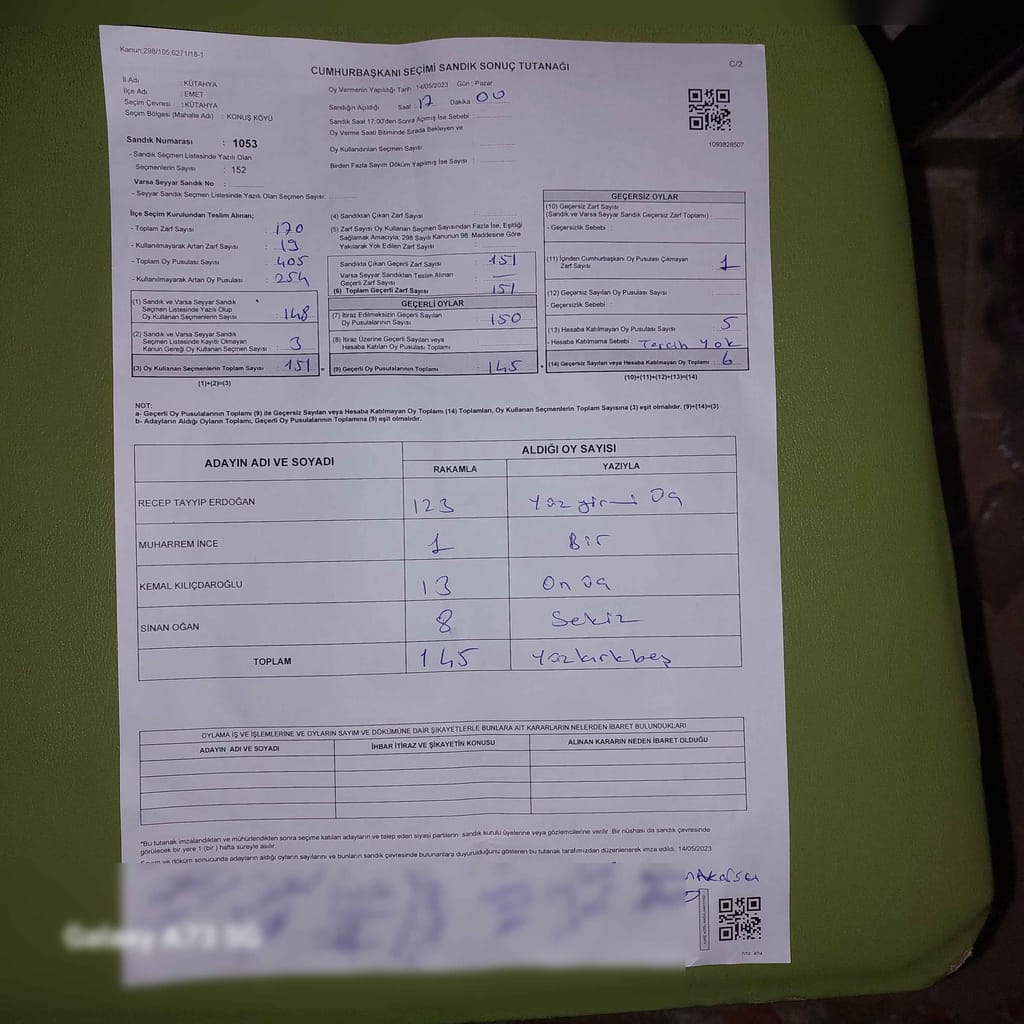 Kanun;298/105;6271/18-1
CUMHURBAŞKANI SEÇİMİ SANDIK SONUÇ TUTANAĞI
C/2
İl Adı : KÜTAHYA
İlçe Adı : EMET
Seçim Çevresi : KÜTAHYA
Seçim Bölgesi (Mahalle Adı) : KONUŞ KÖYÜ
Oy Vermenin Yapıldığı Tarih :14/05/2023 Gün : Pazar
Sandığın Açıldığı Saat : 17 Dakika : 00
Sandık Saat 17:00'den Sonra Açılmış İse Sebebi :
Oy Verme Saati Bitiminde Sırada Bekleyen ve
Oy Kullandırılan Seçmen Sayısı :
Birden Fazla Sayım Döküm Yapılmış İse Sayısı :
1093828507
Sandık Numarası : 1053
- Sandık Seçmen Listesinde Yazılı Olan
Seçmenlerin Sayısı : 152
Varsa Seyyar Sandık No :
- Seyyar Sandık Seçmen Listesinde Yazılı Olan Seçmen Sayısı:
İlçe Seçim Kurulundan Teslim Alınan;
- Toplam Zarf Sayısı : 170
- Kullanılmayarak Artan Zarf Sayısı : 19
- Toplam Oy Pusulası Sayısı : 405
- Kullanılmayarak Artan Oy Pusulası : 254
(1) Sandık ve Varsa Seyyar Sandık
Seçmen Listesinde Yazılı Olup
Oy Kullanan Seçmenlerin Sayısı : 148
(2) Sandık ve Varsa Seyyar Sandık
Seçmen Listesinde Kayıtlı Olmayan
Kanun Gereği Oy Kullanan Seçmen Sayısı : 3
(3) Oy Kullanan Seçmenlerin Toplam Sayısı : 151
(1)+(2)=(3)
(4) Sandıktan Çıkan Zarf Sayısı :
(5) Zarf Sayısı Oy Kullanan Seçmen Sayısından Fazla İse, Eşitliği
Sağlamak Amacıyla; 298 Sayılı Kanunun 98. Maddesine Göre
Yakılarak Yok Edilen Zarf Sayısı :
Sandıkta Çıkan Geçerli Zarf Sayısı : 151
Varsa Seyyar Sandıktan Teslim Alınan
Geçerli Zarf Sayısı : —
(6) Toplam Geçerli Zarf Sayısı : 151
GEÇERLİ OYLAR
(7) İtiraz Edilmeksizin Geçerli Sayılan
Oy Pusulalarının Sayısı : 150
(8) İtiraz Üzerine Geçerli Sayılan veya
Hesaba Katılan Oy Pusulaları Toplamı :
(9) Geçerli Oy Pusulalarının Toplamı : 145
GEÇERSİZ OYLAR
(10) Geçersiz Zarf Sayısı
(Sandık ve Varsa Seyyar Sandık Geçersiz Zarf Toplamı) :
- Geçersizlik Sebebi :
(11) İçinden Cumhurbaşkanı Oy Pusulası Çıkmayan
Zarf Sayısı : 1
(12) Geçersiz Sayılan Oy Pusulası Sayısı :
- Geçersizlik Sebebi :
(13) Hesaba Katılmayan Oy Pusulası Sayısı : 5
- Hesaba Katılmama Sebebi : Tercih Yok
(14) Geçersiz Sayılan veya Hesaba Katılmayan Oy Toplamı : 6
(10)+(11)+(12)+(13)=(14)
NOT:
a- Geçerli Oy Pusulalarının Toplamı (9) ile Geçersiz Sayılan veya Hesaba Katılmayan Oy Toplamı (14) Toplamları, Oy Kullanan Seçmenlerin Toplam Sayısına (3) eşit olmalıdır. (9)+(14)=(3)
b- Adayların Aldığı Oyların Toplamı, Geçerli Oy Pusulalarının Toplamına (9) eşit olmalıdır.
ADAYIN ADI VE SOYADI
ALDIĞI OY SAYISI
RAKAMLA YAZIYLA
RECEP TAYYİP ERDOĞAN 123 Yüz yirmi Üç
MUHARREM İNCE 1 Bir
KEMAL KILIÇDAROĞLU 13 On üç
SİNAN OĞAN 8 Sekiz
TOPLAM 145 Yüzkırkbeş
OYLAMA İŞ VE İŞLEMLERİNE VE OYLARIN SAYIM VE DÖKÜMÜNE DAİR ŞİKAYETLERLE BUNLARA AİT KARARLARIN NELERDEN İBARET BULUNDUKLARI
ADAYIN ADI VE SOYADI İHBAR İTİRAZ VE ŞİKAYETİN KONUSU ALINAN KARARIN NEDEN İBARET OLDUĞU
*Bu tutanak imzalandıktan ve mühürlendikten sonra seçime katılan adayların ve talep eden siyasi partilerin sandık kurulu üyelerine veya gözlemcilerine verilir. Bir nüshası da sandık çevresinde
görülecek bir yere 1 (bir ) hafta süreyle asılır.
Sayım ve döküm sonucunda adayların aldığı oyların sayılarını ve bunların sandık çevresinde bulunanlara duyurulduğunu gösteren bu tutanak tarafımızdan düzenlenerek imza edildi. 14/05/2023
Galaxy A73 5G